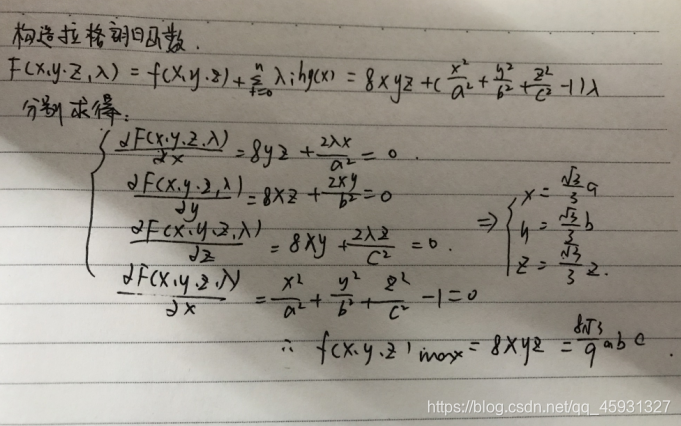 构造拉格朗日函数.
F(x,y.z,λ) = f(x,y.z) + Σ_{i=0}^{n} λi hg(x) = 8xyz + (x²/a² + y²/b² + z²/c² -1)λ
分别求得:
∂F(x.y.z.λ)/∂x = 8yz + 2λx/a² = 0.
∂F(x.y.z,λ)/∂y = 8xz + 2λy/b² = 0
∂F(x.y.z.λ)/∂z = 8xy + 2λz/c² = 0.
∂F(x.y.z.λ)/∂x = x²/a² + y²/b² + z²/c² -1 = 0
⇒ { x = √3/3 a
y = √3/3 b
z = √3/3 z.
∴ f(x.y.z)max = 8xyz = 8√3/9 abc.
https://blog.csdn.net/qq_45931327